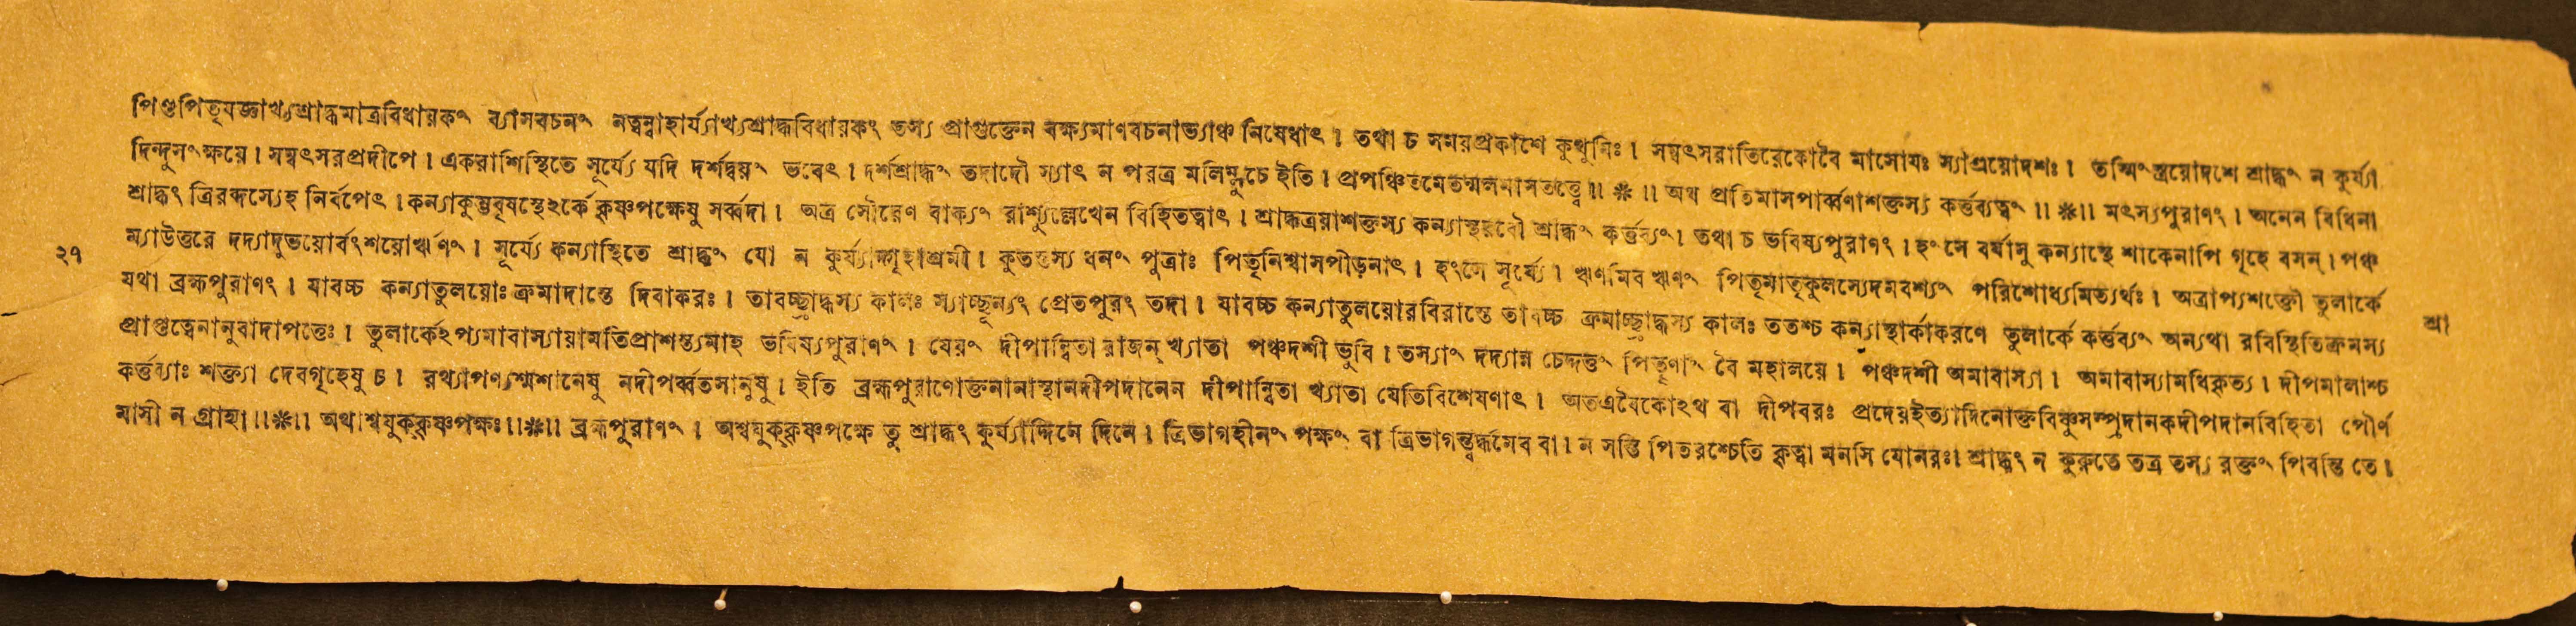 পিণ্ডপিতৃযজ্ঞাখ্যশ্রাদ্ধমাত্রবিধায়কং ব্যাসবচনং নত্বন্বাহার্য্যাখ্যশ্রাদ্ধবিধায়কং তস্য প্রাগুক্তেন বক্ষ্যমাণবচনাভ্যাঞ্চ নিষেধাৎ। তথা চ সময়প্রকাশে কুথুমিঃ। সম্বৎসরাতিরেকোবৈ মাসোযঃ স্যাত্রয়োদশঃ। তস্মিংস্ত্রয়োদশে শ্রাদ্ধং ন কুর্য্যা
দিন্দুসংক্ষয়ে। সম্বৎসরপ্রদীপে। একরাশিস্থিতে সূর্য্যে যদি দর্শদ্বয়ং ভবেৎ। দর্শশ্রাদ্ধং তদাদৌ স্যাৎ ন পরত্র মলিম্লুচে ইতি। প্রপঞ্চিতমেতন্মলমাসতত্ত্বে॥ ❋ ॥ অথ প্রতিমাসপার্ব্বণাশক্তস্য কর্ত্তব্যত্বং ॥ ❋॥ মৎস্যপুরাণং। অনেন বিধিনা
শ্রাদ্ধং ত্রিরব্দস্যেহ নির্বপেৎ। কন্যাকুম্ভবৃষস্থেঽর্কে কৃষ্ণপক্ষেষু সর্ব্বদা। অত্র সৌরেণ বাক্যং রাশ্যুল্লেখেন বিহিতত্বাৎ। শ্রাদ্ধত্রয়াশক্তস্য কন্যাস্থরবৌ শ্রাদ্ধং কর্ত্তব্যং। তথা চ ভবিষ্যপুরাণং। হংসে বর্ষাসু কন্যাস্থে শাকেনাপি গৃহে বসন্। পঞ্চ
২৭ ম্যাউত্তরে দদ্যাদুভয়োর্বংশয়োর্ঋণং। সূর্য্যে কন্যাস্থিতে শ্রাদ্ধং যো ন কুর্য্যাদ্গৃহাশ্রমী। কুতস্তস্য ধনং পুত্রাঃ পিতৃনিশ্বাসপীড়নাৎ। হংসে সূর্য্যে। ঋণমিব ঋণং পিতৃমাতৃকুলস্যেদমবশ্যং পরিশোধ্যমিত্যর্থঃ। অত্রাপ্যশক্তৌ তুলার্কে
যথা ব্রহ্মপুরাণং। যাবচ্চ কন্যাতুলয়োঃ ক্রমাদাস্তে দিবাকরঃ। তাবচ্ছ্রাদ্ধস্য কালঃ স্যাচ্ছূন্যং প্রেতপুরং তদা। যাবচ্চ কন্যাতুলয়োরবিরাস্তে তাবচ্চ ক্রমাচ্ছ্রাদ্ধস্য কালঃ ততশ্চ কন্যাস্থার্কাকরণে তুলার্কে কর্ত্তব্যং অন্যথা রবিস্থিতিক্রমস্য শ্রা
প্রাগুত্বেনানুবাদাপত্তেঃ। তুলার্কেঽপ্যমাবাস্যায়ামতিপ্রাশস্ত্যমাহ ভবিষ্যপুরাণং। যেয়ং দীপান্বিতা রাজন্ খ্যাতা পঞ্চদশী ভুবি। তস্যাং দদ্যান্ন চেদ্দত্তং পিতৄণাং বৈ মহালয়ে। পঞ্চদশী অমাবাস্যা। অমাবাস্যামধিকৃত্য। দীপমালাশ্চ
কর্ত্তব্যাঃ শক্ত্যা দেবগৃহেষু চ। রথ্যাপণ্যশ্মশানেষু নদীপর্ব্বতসানুষু। ইতি ব্রহ্মপুরাণোক্তনানাস্থানদীপদানেন দীপান্বিতা খ্যাতা যেতিবিশেষণাৎ। অতএবৈকোঽথ বা দীপবরঃ প্রদেয়ইত্যাদিনোক্তবিষ্ণুসম্প্রদানকদীপদানবিহিতা পৌর্ণ
মাসী ন গ্রাহ্যা॥❋॥ অথাশ্বযুক্কৃষ্ণপক্ষঃ॥❋॥ ব্রহ্মপুরাণং। অশ্বযুক্কৃষ্ণপক্ষে তু শ্রাদ্ধং কুর্য্যাদ্দিনে দিনে। ত্রিভাগহীনং পক্ষং বা ত্রিভাগন্ত্বর্দ্ধমেব বা। ন সন্তি পিতরশ্চেতি কৃত্বা মনসি যোনরঃ। শ্রাদ্ধং ন কুরুতে তত্র তস্য রক্তং পিবন্তি তে।